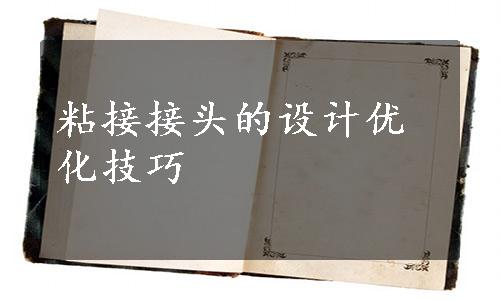 粘接接头的设计优
化技巧